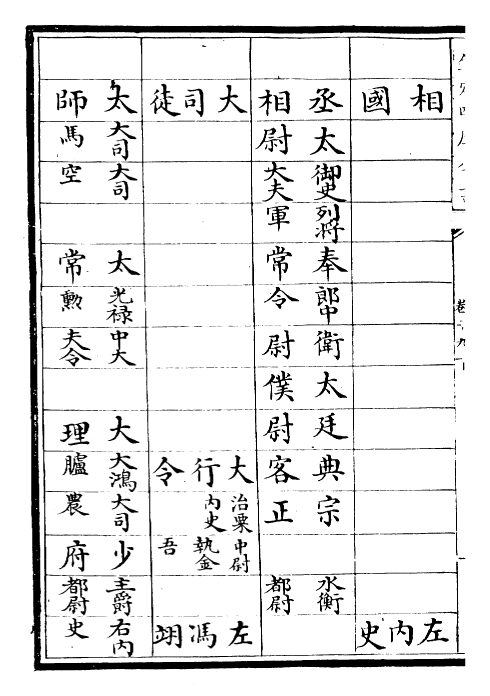 相國
左內史
丞相
太尉
御史大夫
列將軍
奉常
郎中令
衛尉
太僕
廷尉
典客
宗正
水衡都尉
大司徒
大行令
治粟內史
中尉執金吾
左馮翊
太師
大司馬
大司空
太常
光祿勲
中大夫令
大理
大鴻臚
大司農
少府
主爵都尉
右內史